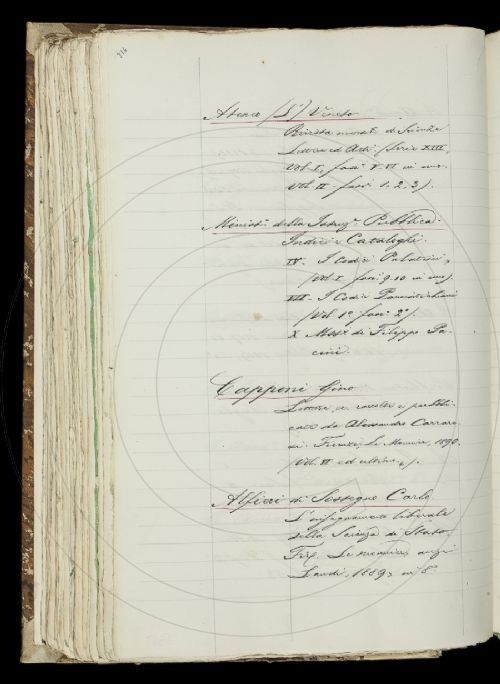 Ateneo (L') Veneto
Rivista mens. di Scienze
Lettere ed Arti. (Serie XIII,
Vol. I, fasc. V-VI in uno.
Vol. II fasc. 1. 2. 3).
Minist. della Istruz. Pubblica.
Indici e Cataloghi.
IV. I Codici Palatini,
(Vol. I fasc. 9.10 in uno).
VIII. I Codici Panciatichiani
(Vol. 1º fasc. 2º).
X Mss. di Filippo Pa-
cini.
Capponi Gino
Lettere, raccolte e pubbli-
cate da Alessandro Carrare-
si. Firenze, Le Monnier, 1890.
(Vol. VI ed ultimo).
Alfieri di Sostegno Carlo
L'insegnamento liberale
della Scienza di Stato
Fir. Le Monnier,
Landi, 1889, in 8º.